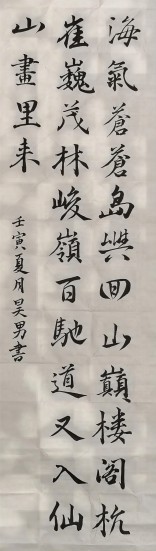 海氣蒼蒼島嶼回山巔楼阁抗
崔巍茂林峻嶺百馳道又入仙
山畫里来
壬寅夏月昊男書